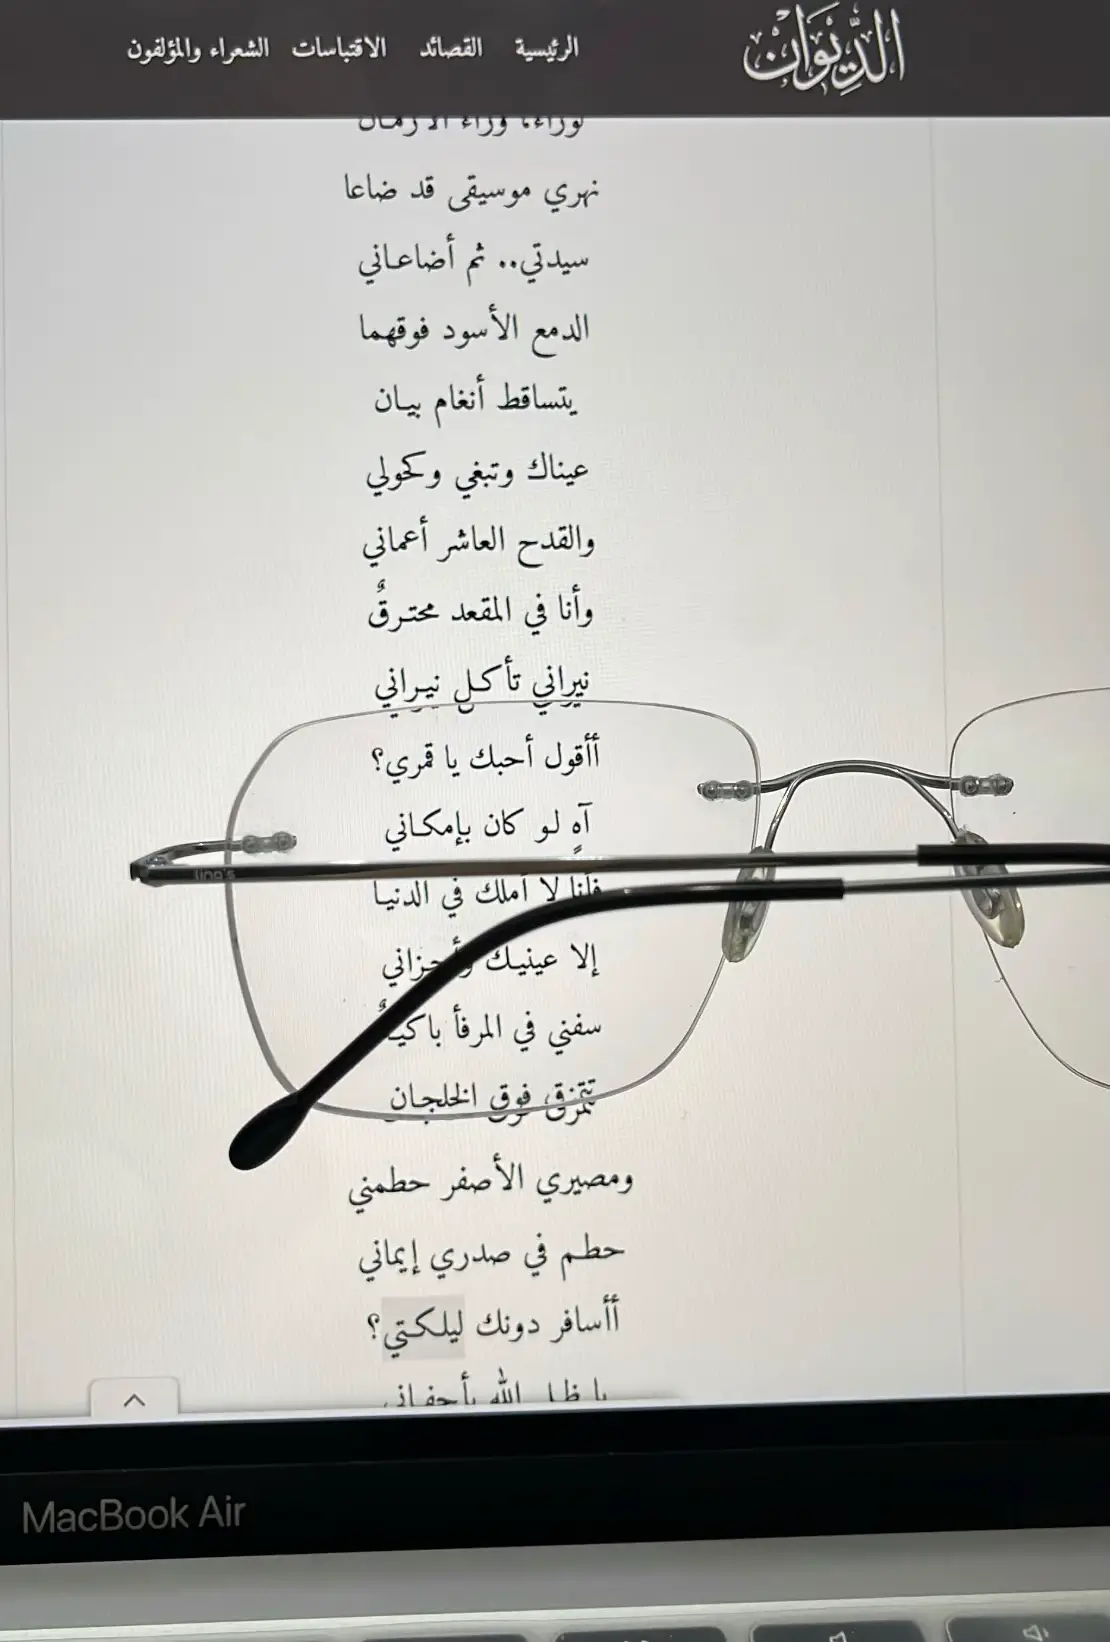 الدِّيوَان
الرئيسية القصائد الاقتباسات الشعراء والمؤلفون
لوراء، وراء الأزمان
نهري موسيقى قد ضاعا
سيدتي.. ثم أضاعاني
الدمع الأسود فوقهما
يتساقط أنغام بيان
عيناك وتبغي وكحولي
والقدح العاشر أعماني
وأنا في المقعد محترقٌ
نيراني تأكل نيراني
أأقول أحبك يا قمري؟
آهٍ لو كان بإمكاني
فأنا لا أملك في الدنيا
إلا عينيك وأحزاني
سفني في المرفأ باكيةٌ
تتمزق فوق الخلجان
ومصيري الأصفر حطمني
حطم في صدري إيماني
أأسافر دونك ليلكتي؟
يا ظل الله بأجفاني
ling's
MacBook Air